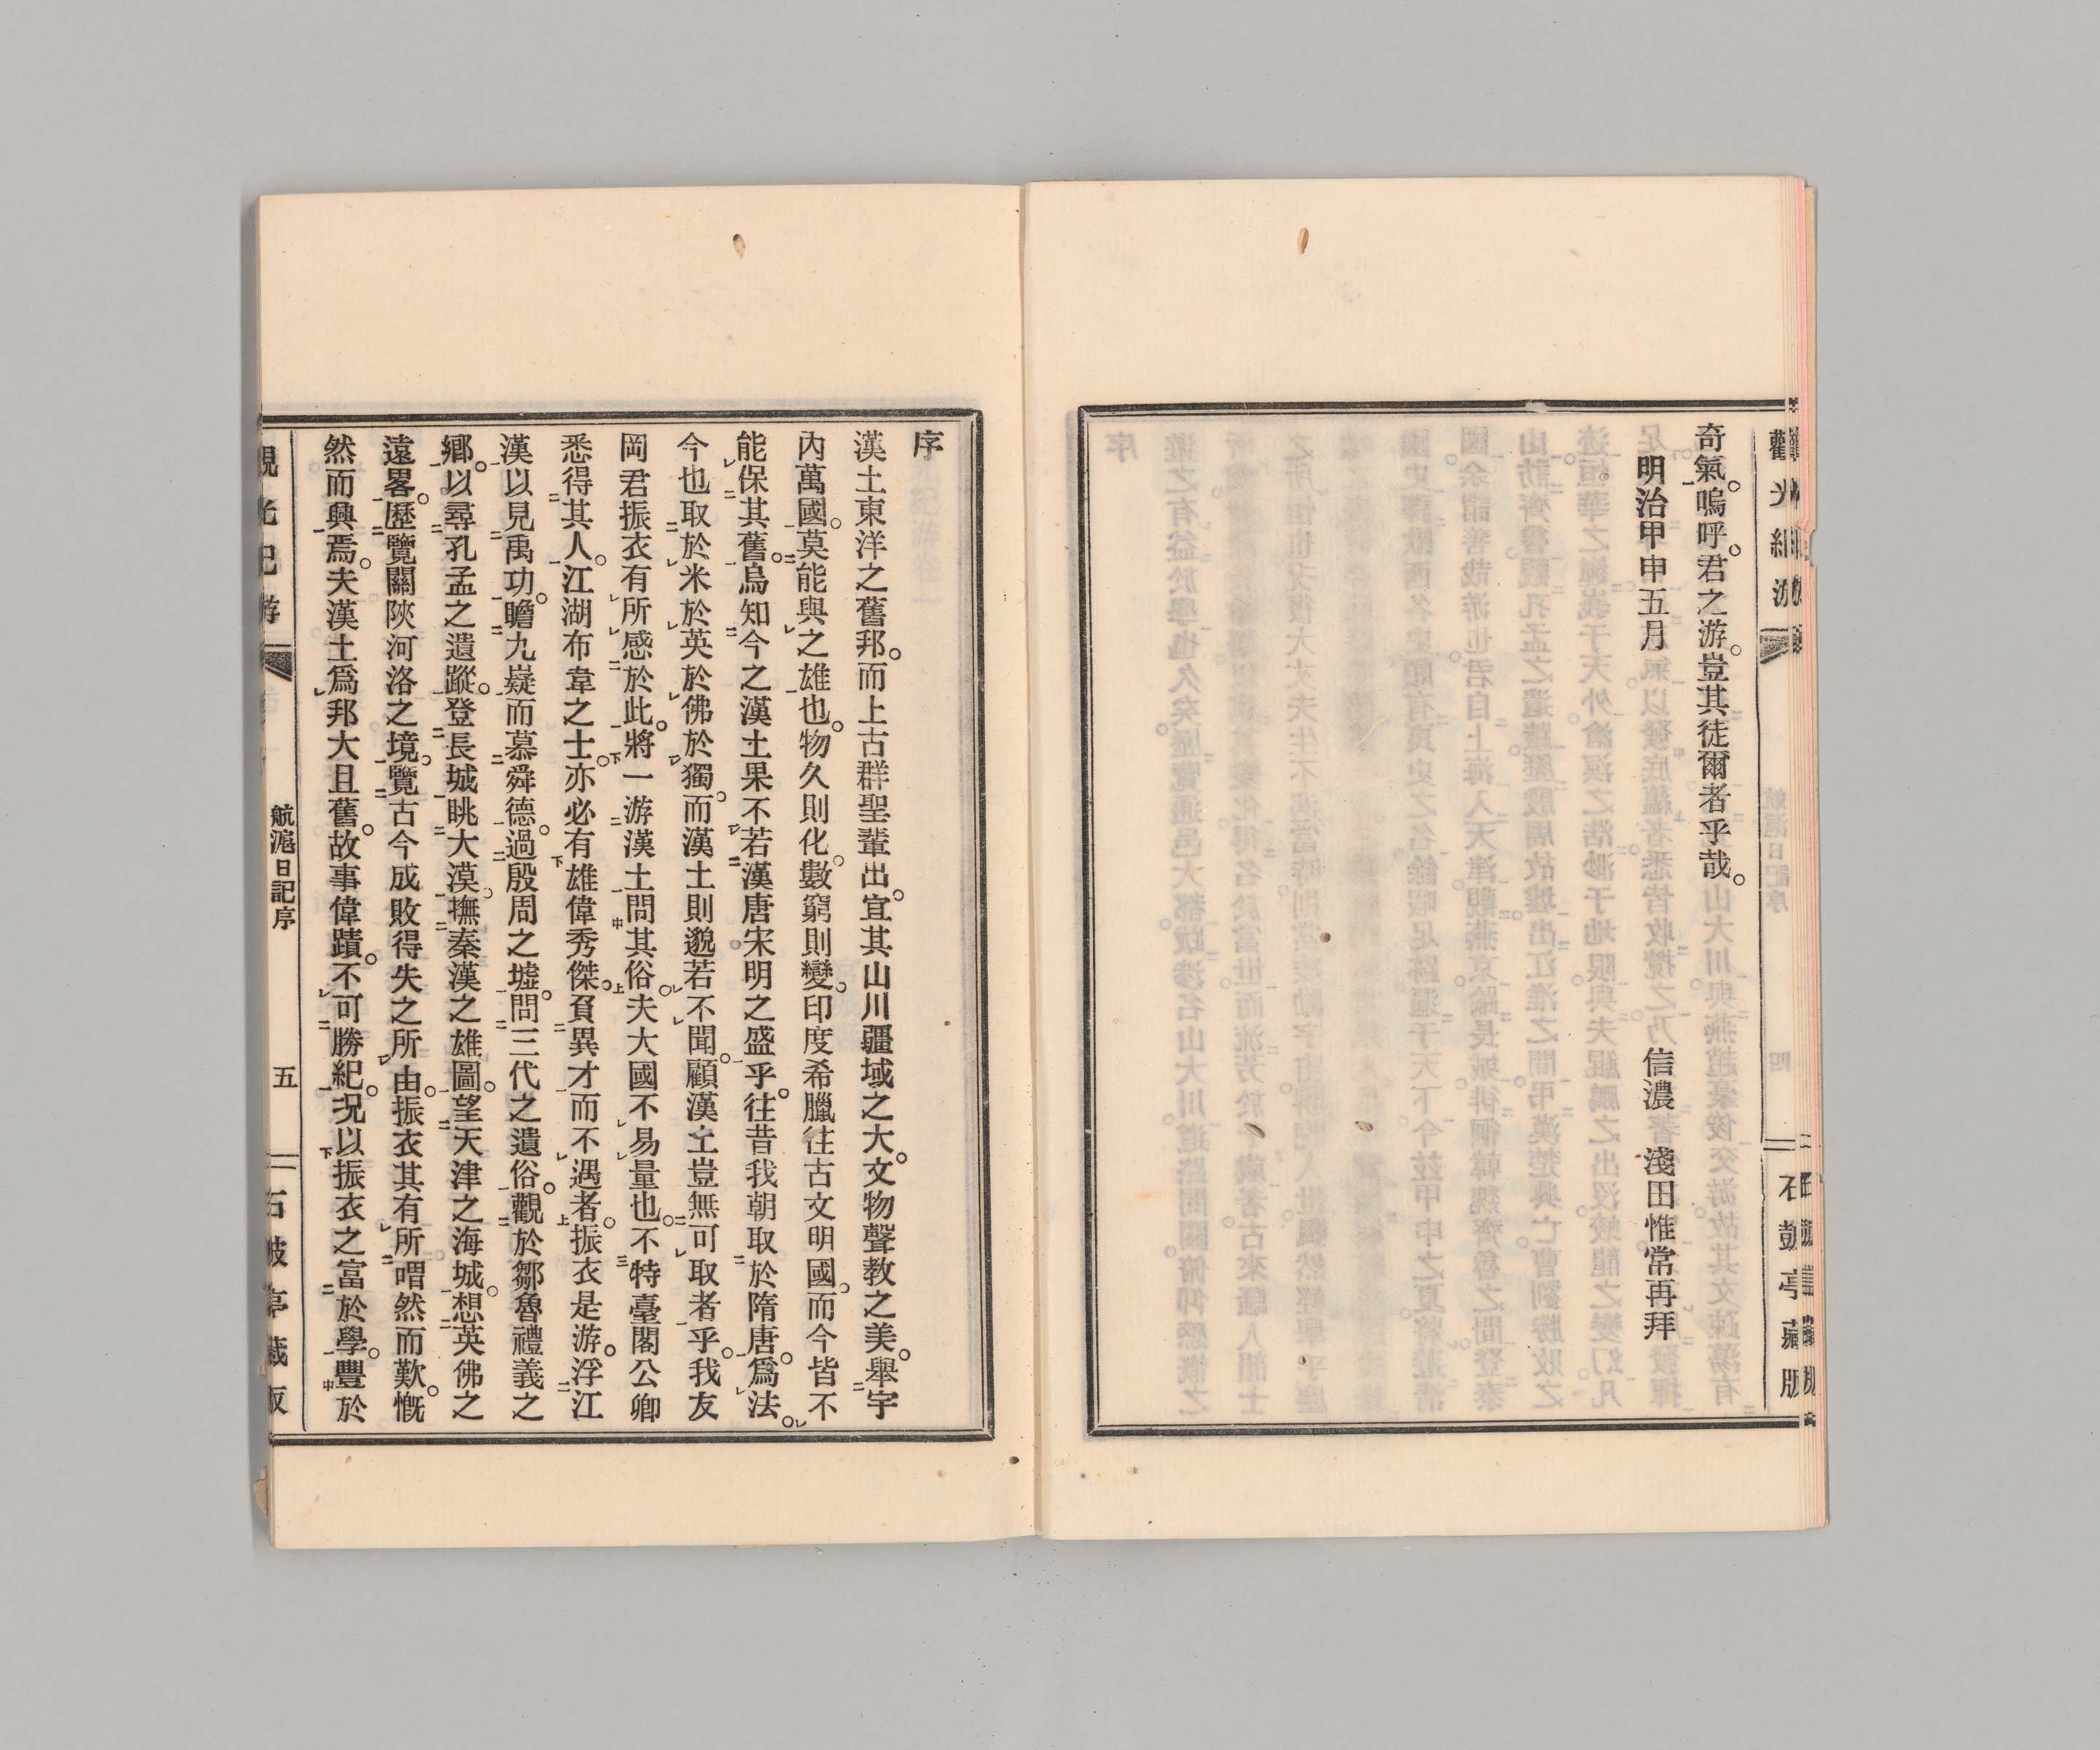 觀光紀游
石鼓亭藏版
奇氣。嗚呼。君之游。豈其徒爾者乎哉。
明治甲申五月　信濃　淺田惟常再拜
序
漢土東洋之舊邦。而上古群聖輩出。宜其山川疆域之大。文物聲教之美。舉宇
內萬國。莫能與之雄也。物久則化。數窮則變。印度希臘往古文明國。而今皆不
能保其舊。烏知今之漢土果不若漢唐宋明之盛乎。往昔我朝取於隋唐。爲法。
今也取於米於英於佛於獨。而漢土則邈若不聞。顧漢土豈無可取者乎。我友
岡君振衣有所感於此。將一游漢土問其俗。夫大國不易量也。不特臺閣公卿
悉得其人。江湖布韋之士。亦必有雄偉秀傑。負異才而不遇者。振衣是游。浮江
漢以見禹功。瞻九嶷而慕舜德。過殷周之墟。問三代之遺俗。觀於鄒魯禮義之
鄉。以尋孔孟之遺蹤。登長城眺大漠。撫秦漢之雄圖。望天津之海城。想英佛之
遠畧。歷覽關陝河洛之境。覽古今成敗得失之所由。振衣其有所喟然而歎。慨
然而興焉。夫漢土爲邦大且舊。故事偉蹟。不可勝紀。況以振衣之富於學。豐於
觀光紀游
航滬日記序
五
石鼓亭藏版